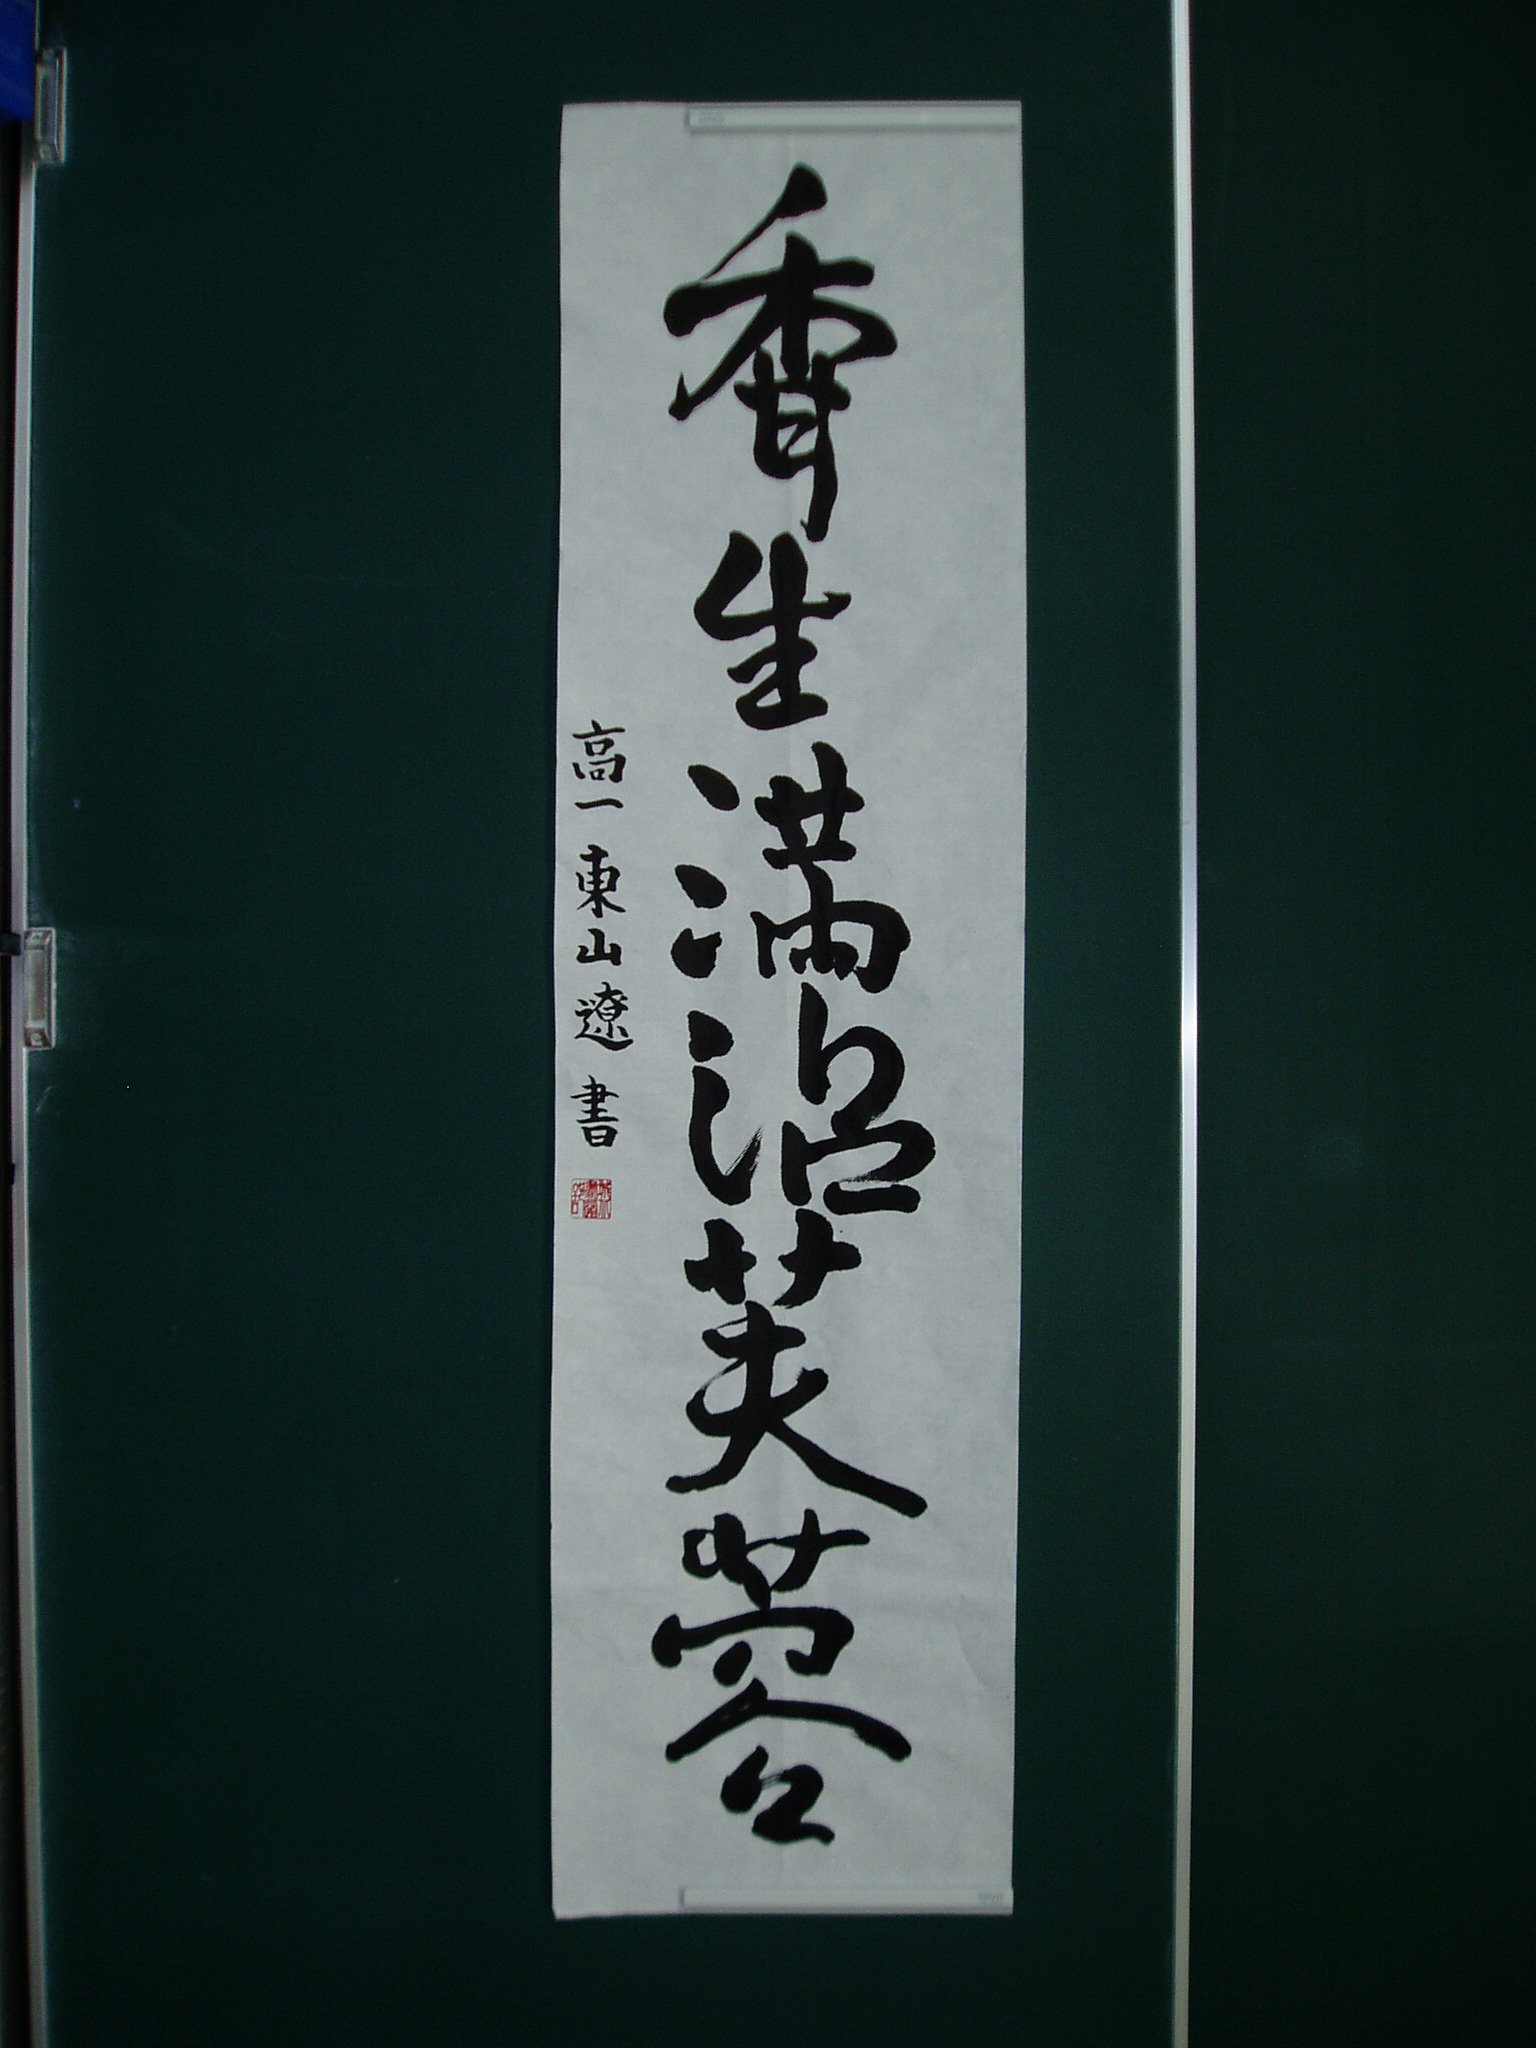 香生満沼芙蓉
高一 東山遼 書